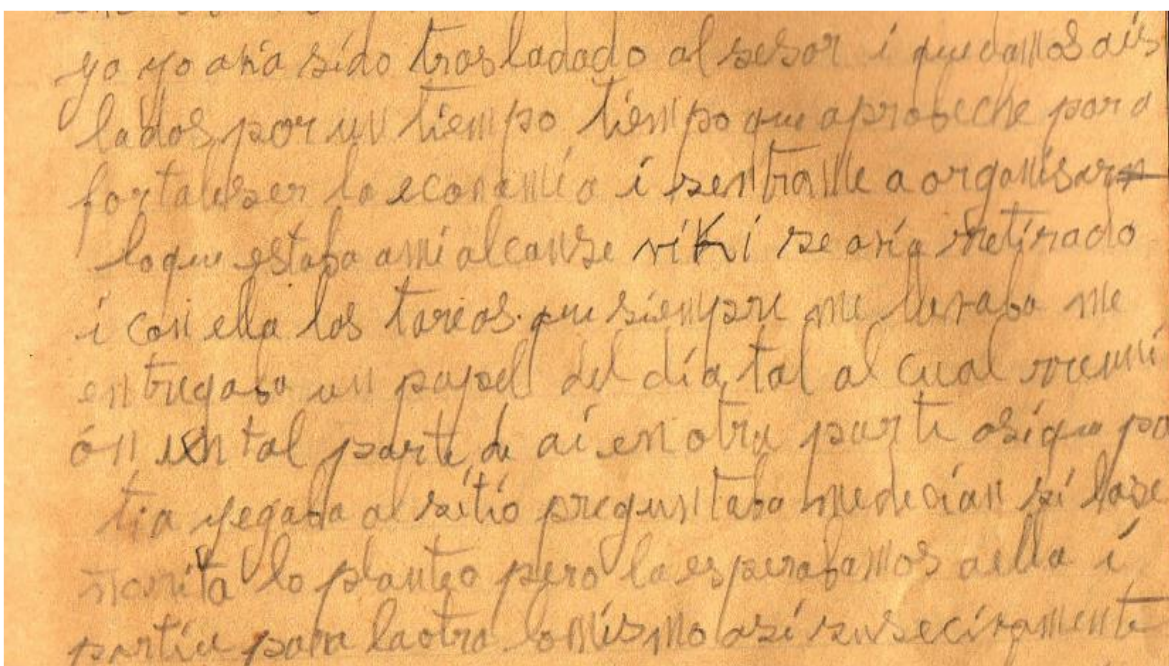 yo yo abia sido trasladado al sesor i quedamos ais
lados por un tiempo tiempo que aprobeche para
fortaleser la economía i sentrarme a organisar
loque estaba ami alcanse viki se avía rretirado
i con ella las tareas que siempre me llevaba me
entregaba un papel del día tal al cual rreuni
ón en tal parte de aí en otra parte asique pa
tia yegaba al sitio preguntaba medician sí lase
ñorita lo planteo pero la esperabamos aella i
partia para laotra lo mismo asi susecibamente